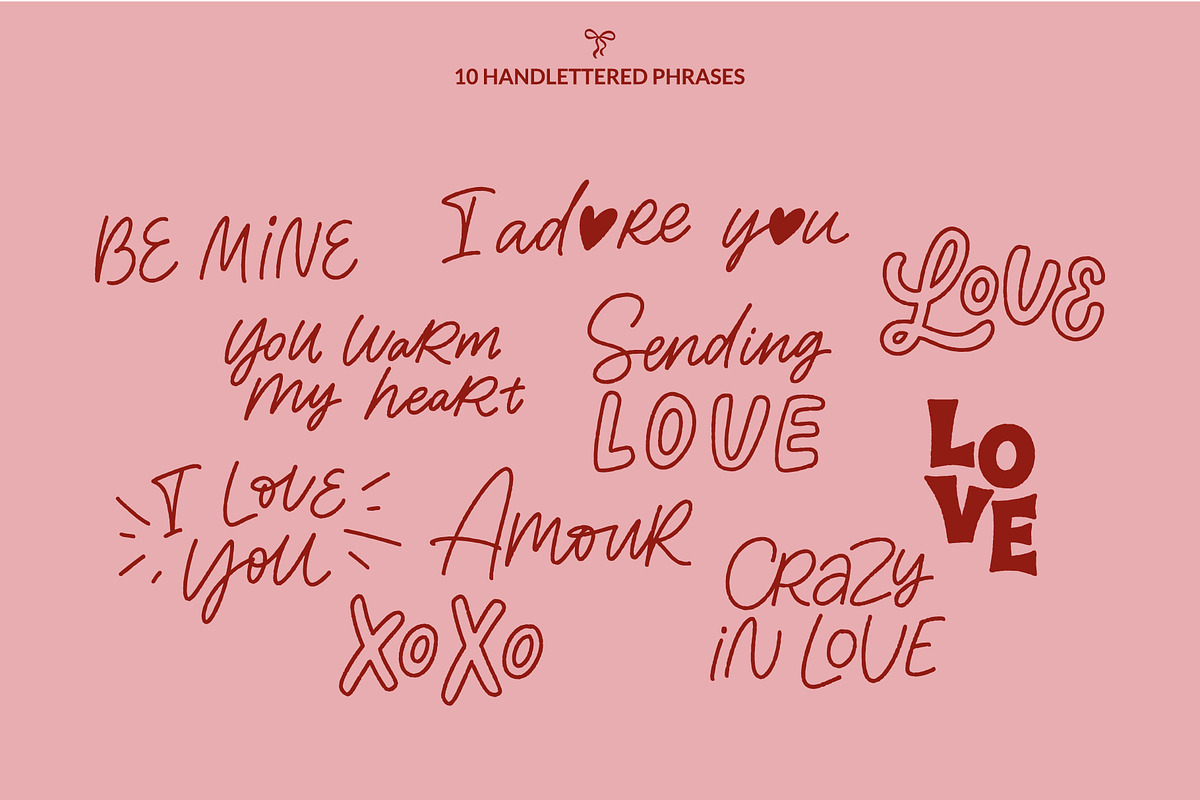 10 HANDLETTERED PHRASES
BE MiNE
I adore you
LOVE
you waRm
my heaRt
Sending
LOVE
LO
VE
I LOVE
you
AmouR
CRaZy
iN LOVE
XoXo